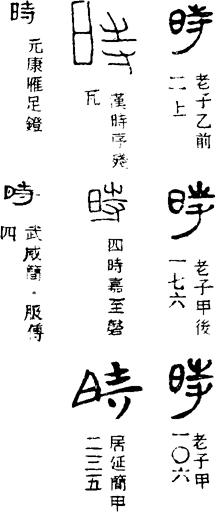 時
老子乙前
二上
時
老子甲後
一七六
時
老子甲
一〇六
時
漢時序殘
瓦
時
四時嘉至磬
時
居延簡甲
二二三五
時
元康雁足鐙
時
武威簡·服傳
四